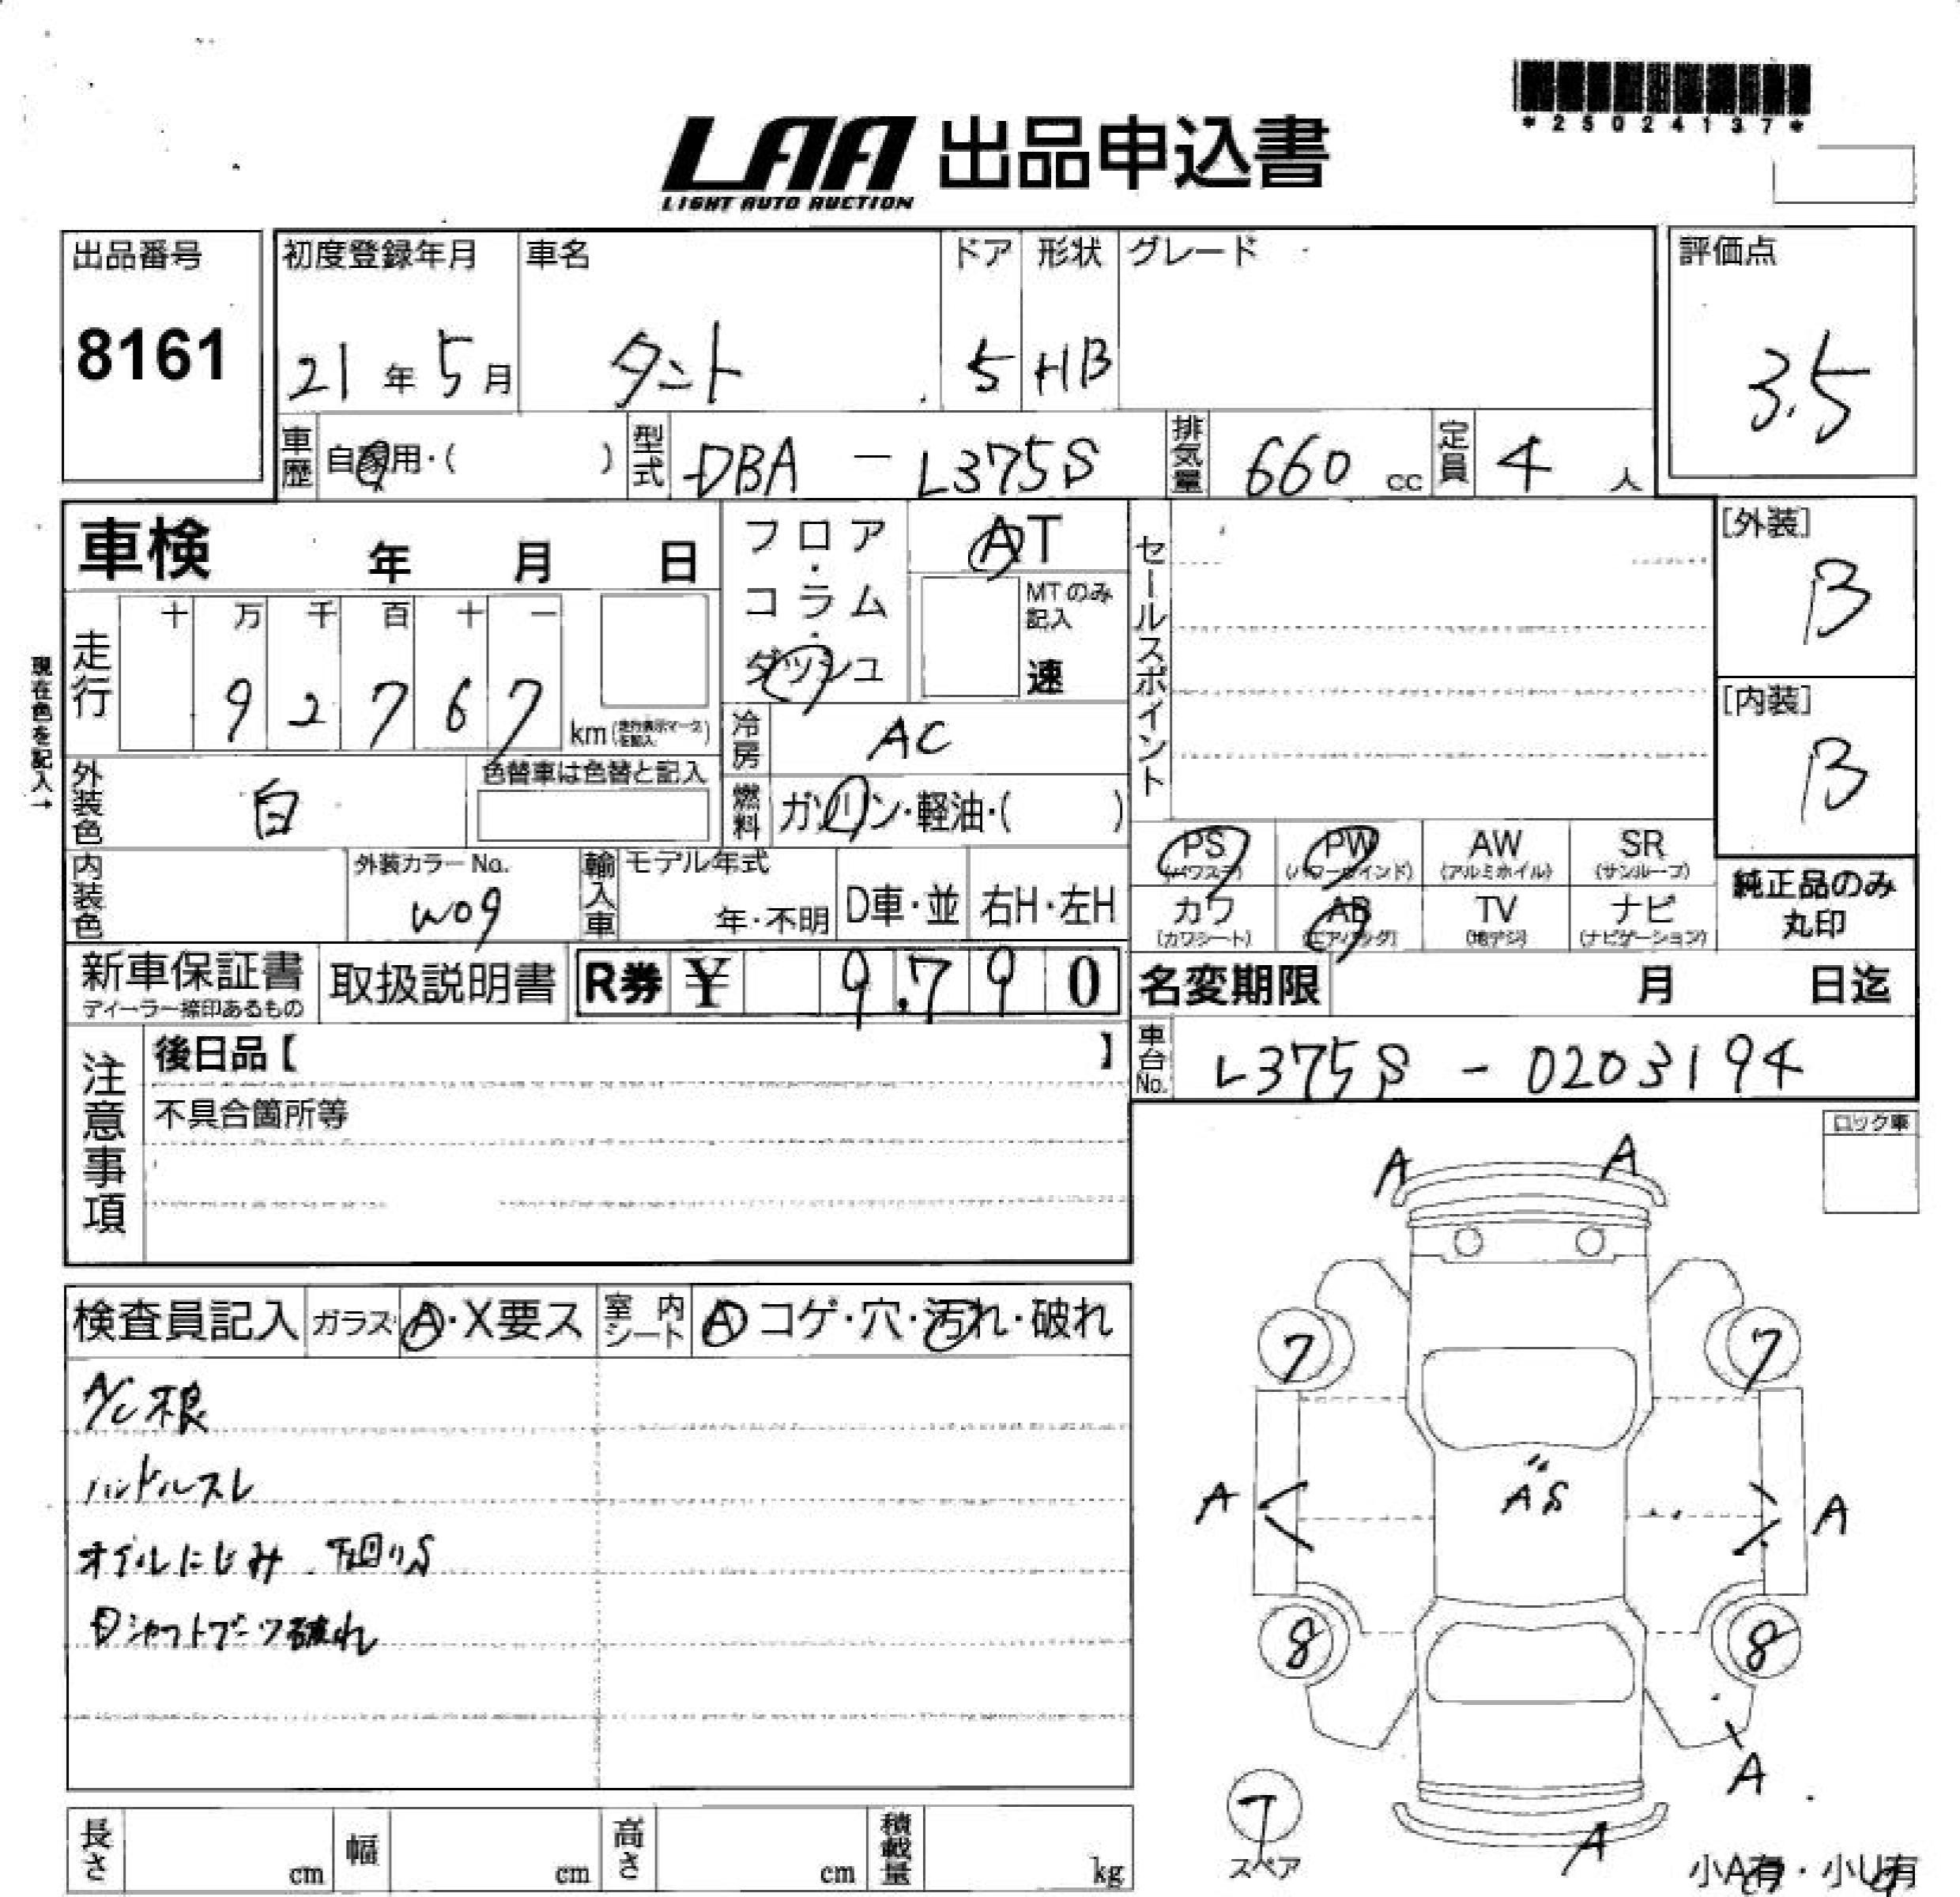 *25024137*
LAA 出品申込書
LIGHT AUTO AUCTION
出品番号 初度登録年月 車名 ドア 形状 グレード 評価点
8161 21年5月 タント 5 HB 3.5
車歴 自家用・( ) 型式 DBA - L375S 排気量 660 cc 定員 4 人
車検 年 月 日 フロア・コラム・ダッシュ AT
MTのみ記入 速
セールスポイント
[外装]
B
[内装]
B
現在色を記入→
走行 十 万 千 百 十 一
9 2 7 6 7 km
冷房 AC
外装色 白 色替車は色替と記入
燃料 ガソリン・軽油・( )
PS (パワステ) PW (パワーウインド) AW (アルミホイル) SR (サンルーフ)
カワ (カワシート) AB (エアバッグ) TV (地デジ) ナビ (ナビゲーション)
純正品のみ
丸印
内装色 外装カラーNo. W09 輸入車 モデル年式 年・不明 D車・並 右H・左H
新車保証書 取扱説明書 R券 ¥ 9.790
ディーラー捺印あるもの
名変期限 月 日迄
車台No. L375S - 0203194
注意事項
後日品【 】
不具合箇所等
ロック車
A A
検査員記入 ガラス A・X要ス 室内シート A コゲ・穴・汚れ・破れ
7 7
A/C不良
ハンドルスレ
A AS A
オイルにじみ 下回りS
シャフトブーツ破れ
8 8
A
7
スペア
A
小A有・小U有
長さ cm 幅 cm 高さ cm 積載量 kg